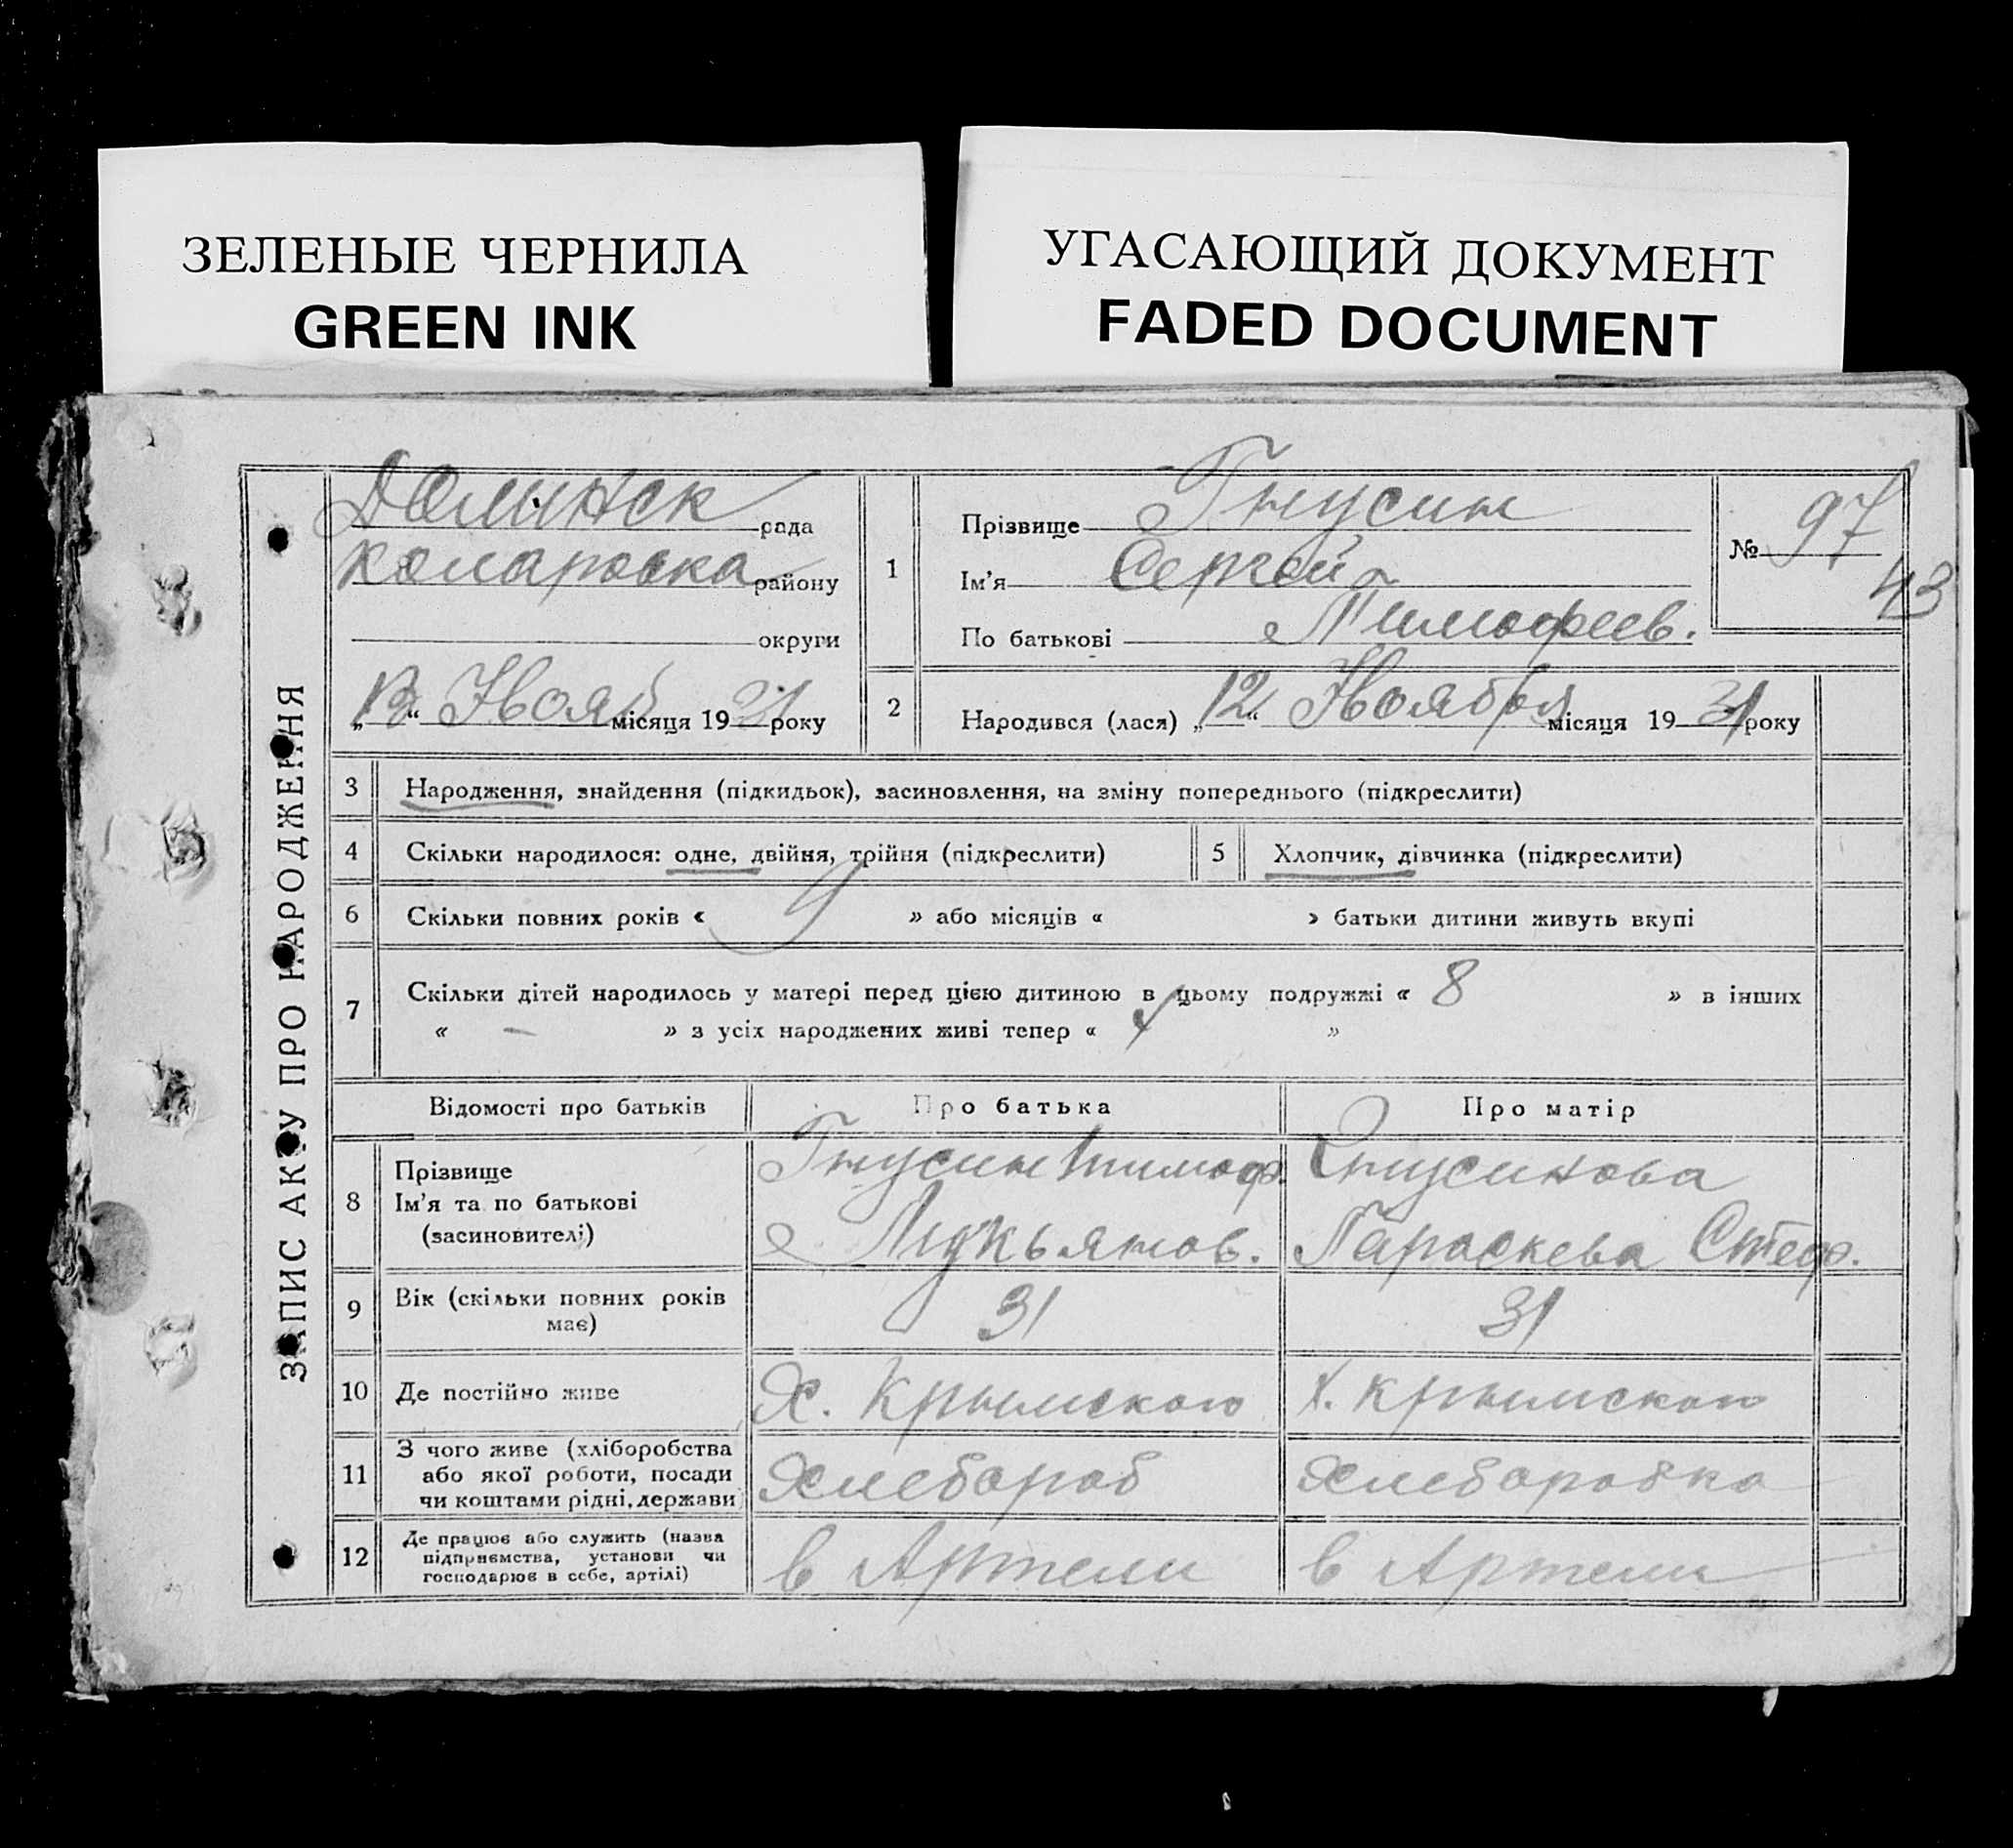 ЗЕЛЕНЫЕ ЧЕРНИЛА
GREEN INK
УГАСАЮЩИЙ ДОКУМЕНТ
FADED DOCUMENT
ЗАПИС АКТУ ПРО НАРОДЖЕННЯ
Долинск рада
Коларовка району
округи
„13“ Нояб місяця 1931 року
1
Прізвище Гнусин
Ім'я Сергей
По батькові Тимофеев.
№ 97
43
2
Народився (лася) „12“ Ноября місяця 1931 року
3 Народження, знайдення (підкидьок), засиновлення, на зміну попереднього (підкреслити)
4 Скільки народилося: одне, двійня, трійня (підкреслити)
5 Хлопчик, дівчинка (підкреслити)
6 Скільки повних років « 9 » або місяців « » батьки дитини живуть вкупі
7 Скільки дітей народилось у матері перед цією дитиною в цьому подружжі « 8 » в інших
« – » з усіх народжених живі тепер « »
Відомості про батьків Про батька Про матір
8 Прізвище
Ім'я та по батькові
(засиновителі)
Гнусин Тимоф.
Лукьянов.
Гнусинова
Параскева Стеф.
9 Вік (скільки повних років
має)
31 31
10 Де постійно живе Х. Крымского Х. Крымского
11 З чого живе (хліборобства
або якої роботи, посади
чи коштами рідні, держави)
Хлебороб Хлеборобка
12 Де працює або служить (назва
підприємства, установи чи
господарює в себе, артілі)
в Артели в Артели